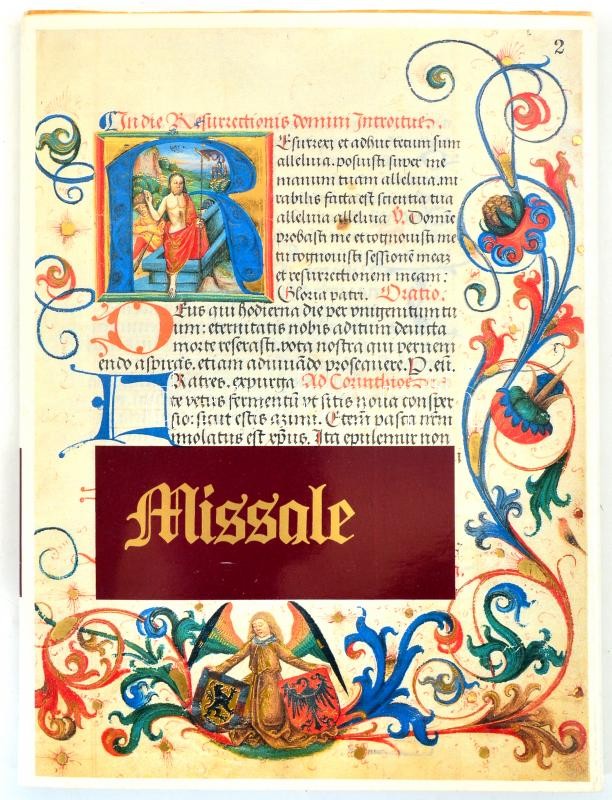 2
In die Resurrectionis domini Introitus.
Esurrexi et adhuc tecum sum
alleluia. posuisti super me
manum tuam alleluia. mi
rabilis facta est scientia tua
alleluia alleluia V. Domīe
probasti me et cognouisti me
tu cognouisti sessionē meaz
et resurrectionem meam:
Gloria patri. Oratio.
Eus qui hodierna die per vnigenitum tu
um: eternitatis nobis aditum deuicta
morte reserasti. vota nostra que preueni
endo aspiras. etiam adiuuādo prosequere. P. eū.
Ratres. expurga Ad Corinthios
te vetus fermentū vt sitis noua consper
sio: sicut estis azimi. Etem pasca nrm
immolatus est xp̄us. Ita epulemur non
Missale